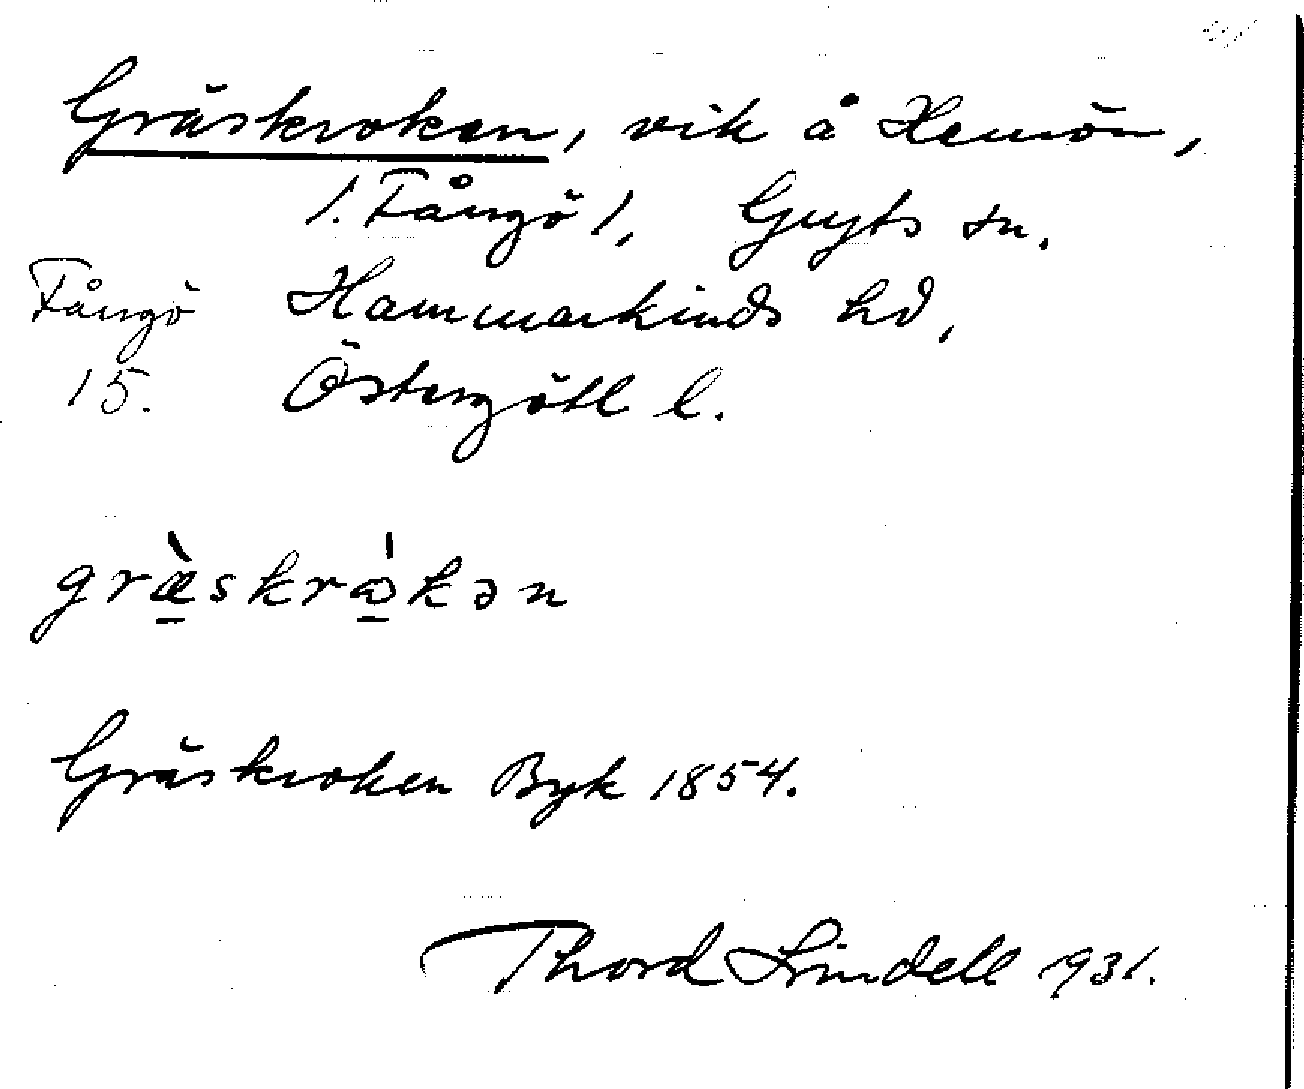 Gräskroken, vik å Hemön,
/. Fångö /, Gryts sn.
Fångö Hammarkinds hd,
15. Östergötl l.
græ̠̀skrɷ̠́kən
Gräskroken Byk 1854.
Thord Lindell 1931.